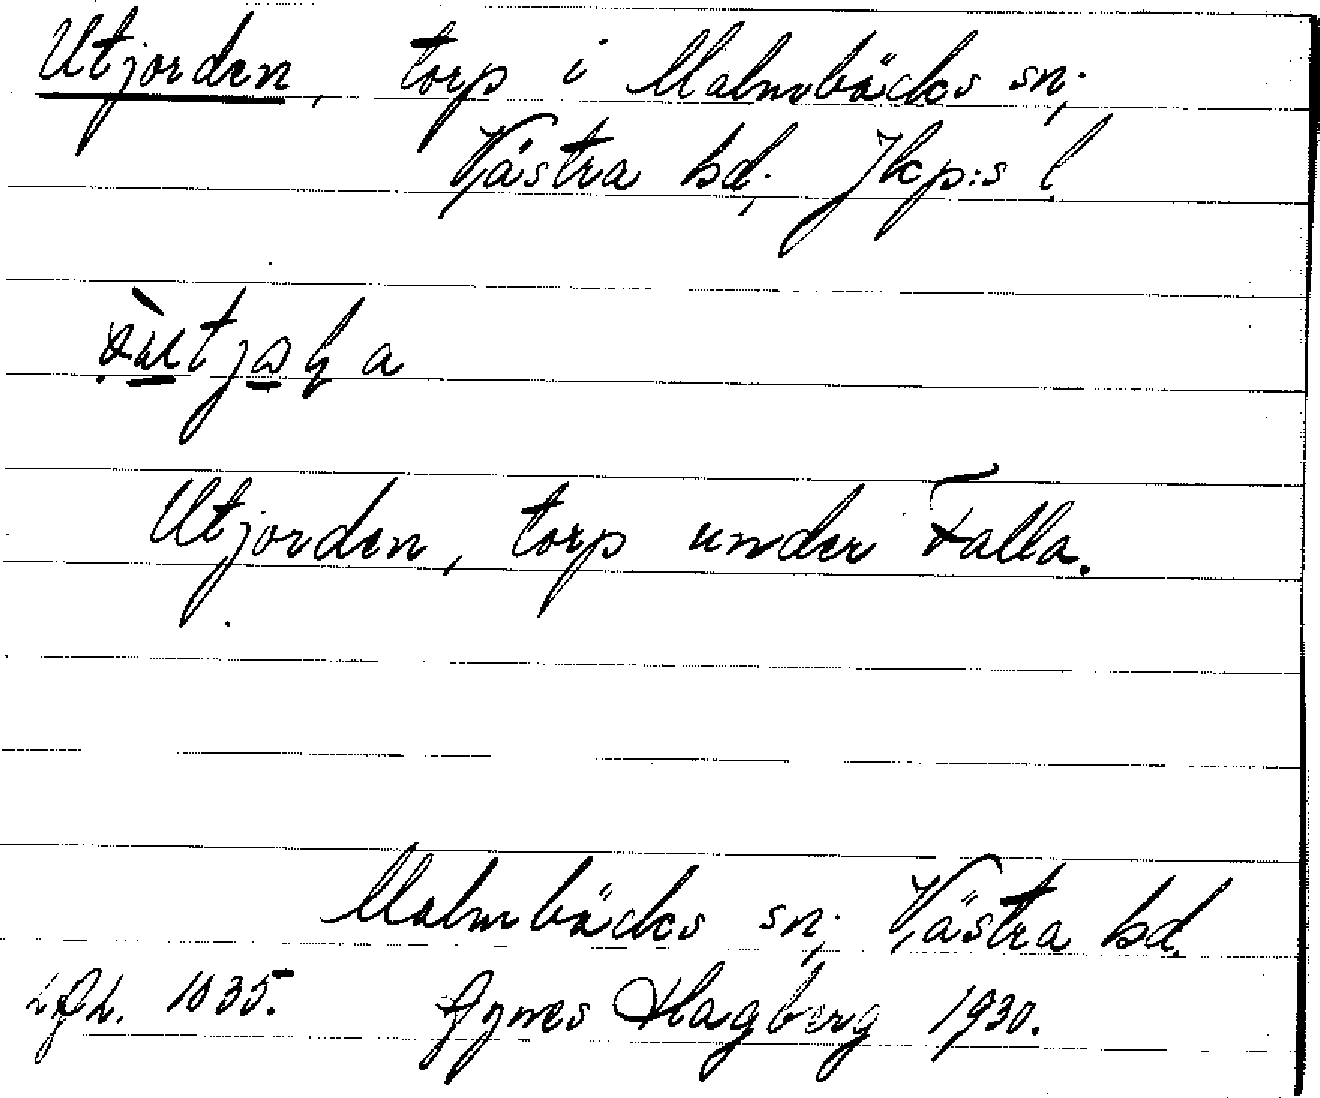 Utjorden, torp i Malmbäcks sn;
Västra hd; Jkp:s l
Utjorden, torp under Falla.
Malmbäcks sn; Västra hd.
1035. Agnes Hagberg 1930.